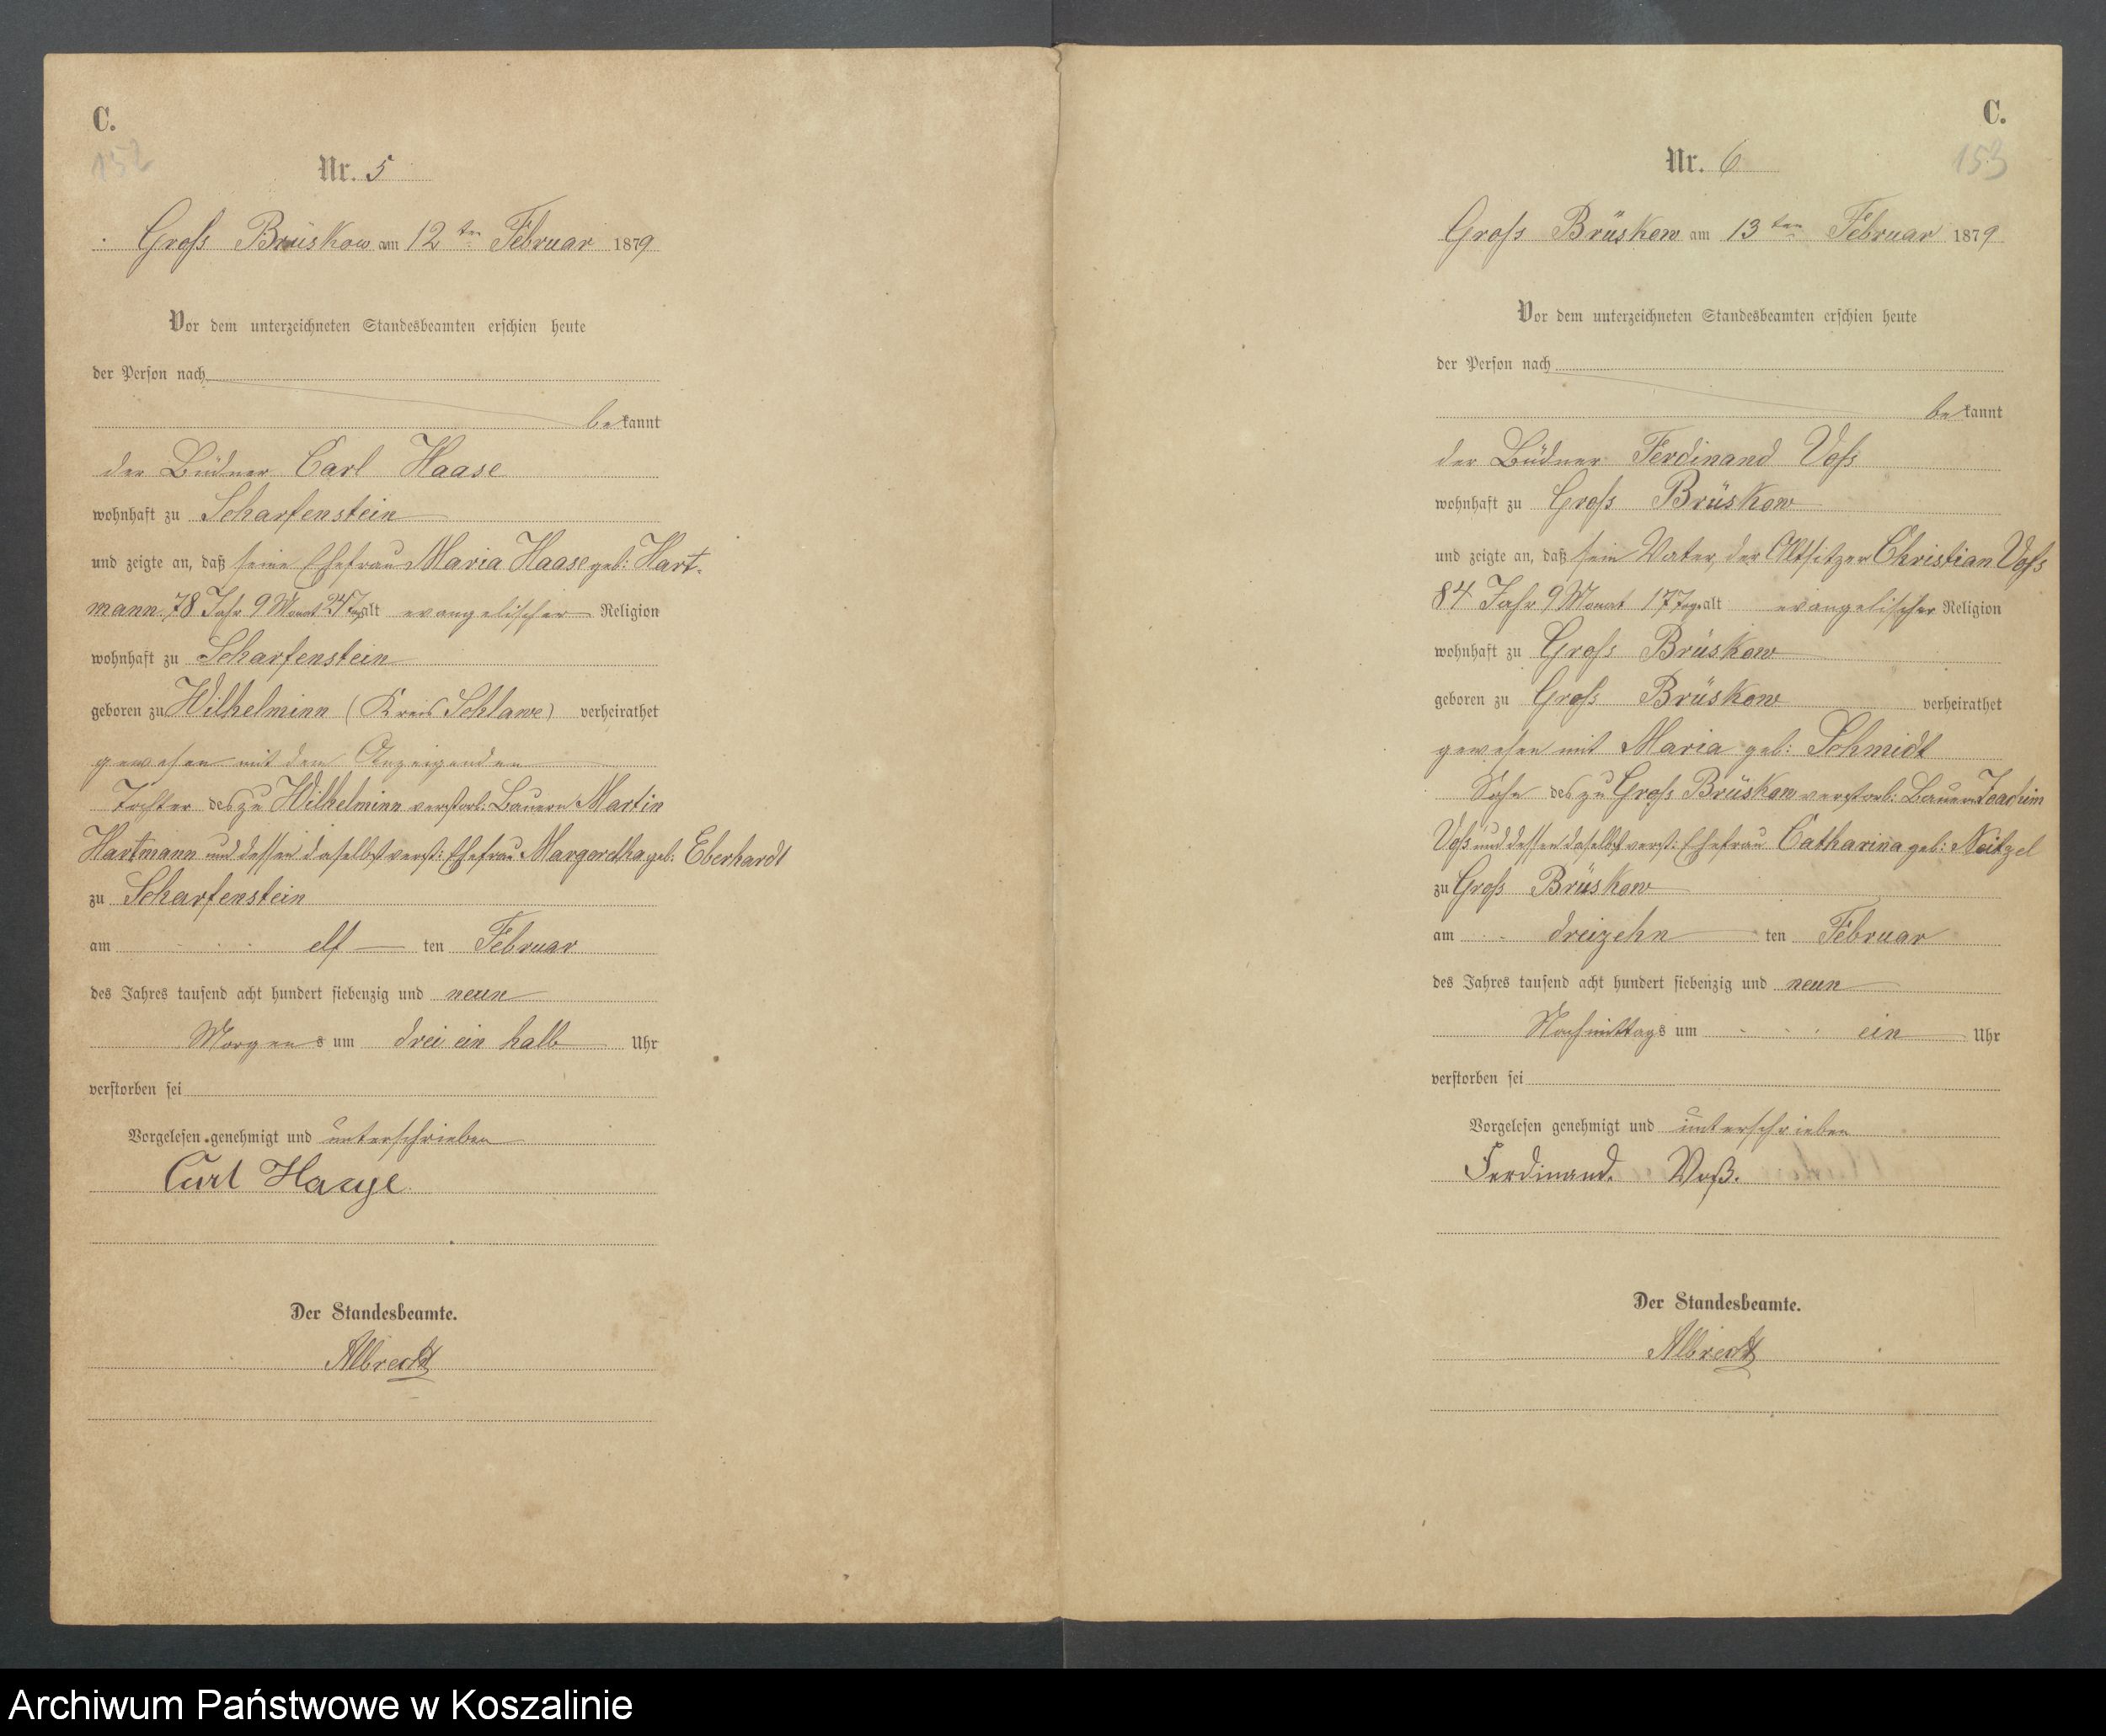 C.
152
Nr. 5
Groß Brüskow am 12ten Februar 1879
Vor dem unterzeichneten Standesbeamten erschien heute
der Person nach
bekannt
der Büdner Carl Haase
wohnhaft zu Scharfenstein
und zeigte an, daß seine Ehefrau Maria Haase geb: Hart-
mann 78 Jahr 9 Monat Tage alt evangelischer Religion
wohnhaft zu Scharfenstein
geboren zu Wilhelminn (Kreis Schlawe) verheirathet
gewesen mit dem Anzeigenden
Tochter des zu Wilhelminn verstorb: Bauern Martin
Hartmann und dessen daselbst verst: Ehefrau Margaretha geb: Eberhardt
zu Scharfenstein
am elf ten Februar
des Jahres tausend acht hundert siebenzig und neun
Morgens um drei ein halb Uhr
verstorben sei
Vorgelesen genehmigt und unterschrieben
Carl Haase
Der Standesbeamte.
Albrecht
C.
153
Nr. 6
Groß Brüskow am 13ten Februar 1879
Vor dem unterzeichneten Standesbeamten erschien heute
der Person nach
bekannt
der Büdner Ferdinand Voß
wohnhaft zu Groß Brüskow
und zeigte an, daß sein Vater, der Altsitzer Christian Voß
84 Jahr 9 Monat 17 Tage alt evangelischer Religion
wohnhaft zu Groß Brüskow
geboren zu Groß Brüskow verheirathet
gewesen mit Maria geb: Schmidt
Sohn des zu Groß Brüskow verstorb: Bauern Joachim
Voß und dessen daselbst verst: Ehefrau Catharina geb: Neitzel
zu Groß Brüskow
am dreizehn ten Februar
des Jahres tausend acht hundert siebenzig und neun
Nachmittags um ein Uhr
verstorben sei
Vorgelesen genehmigt und unterschrieben
Ferdinand. Voß.
Der Standesbeamte.
Albrecht
Archiwum Państwowe w Koszalinie